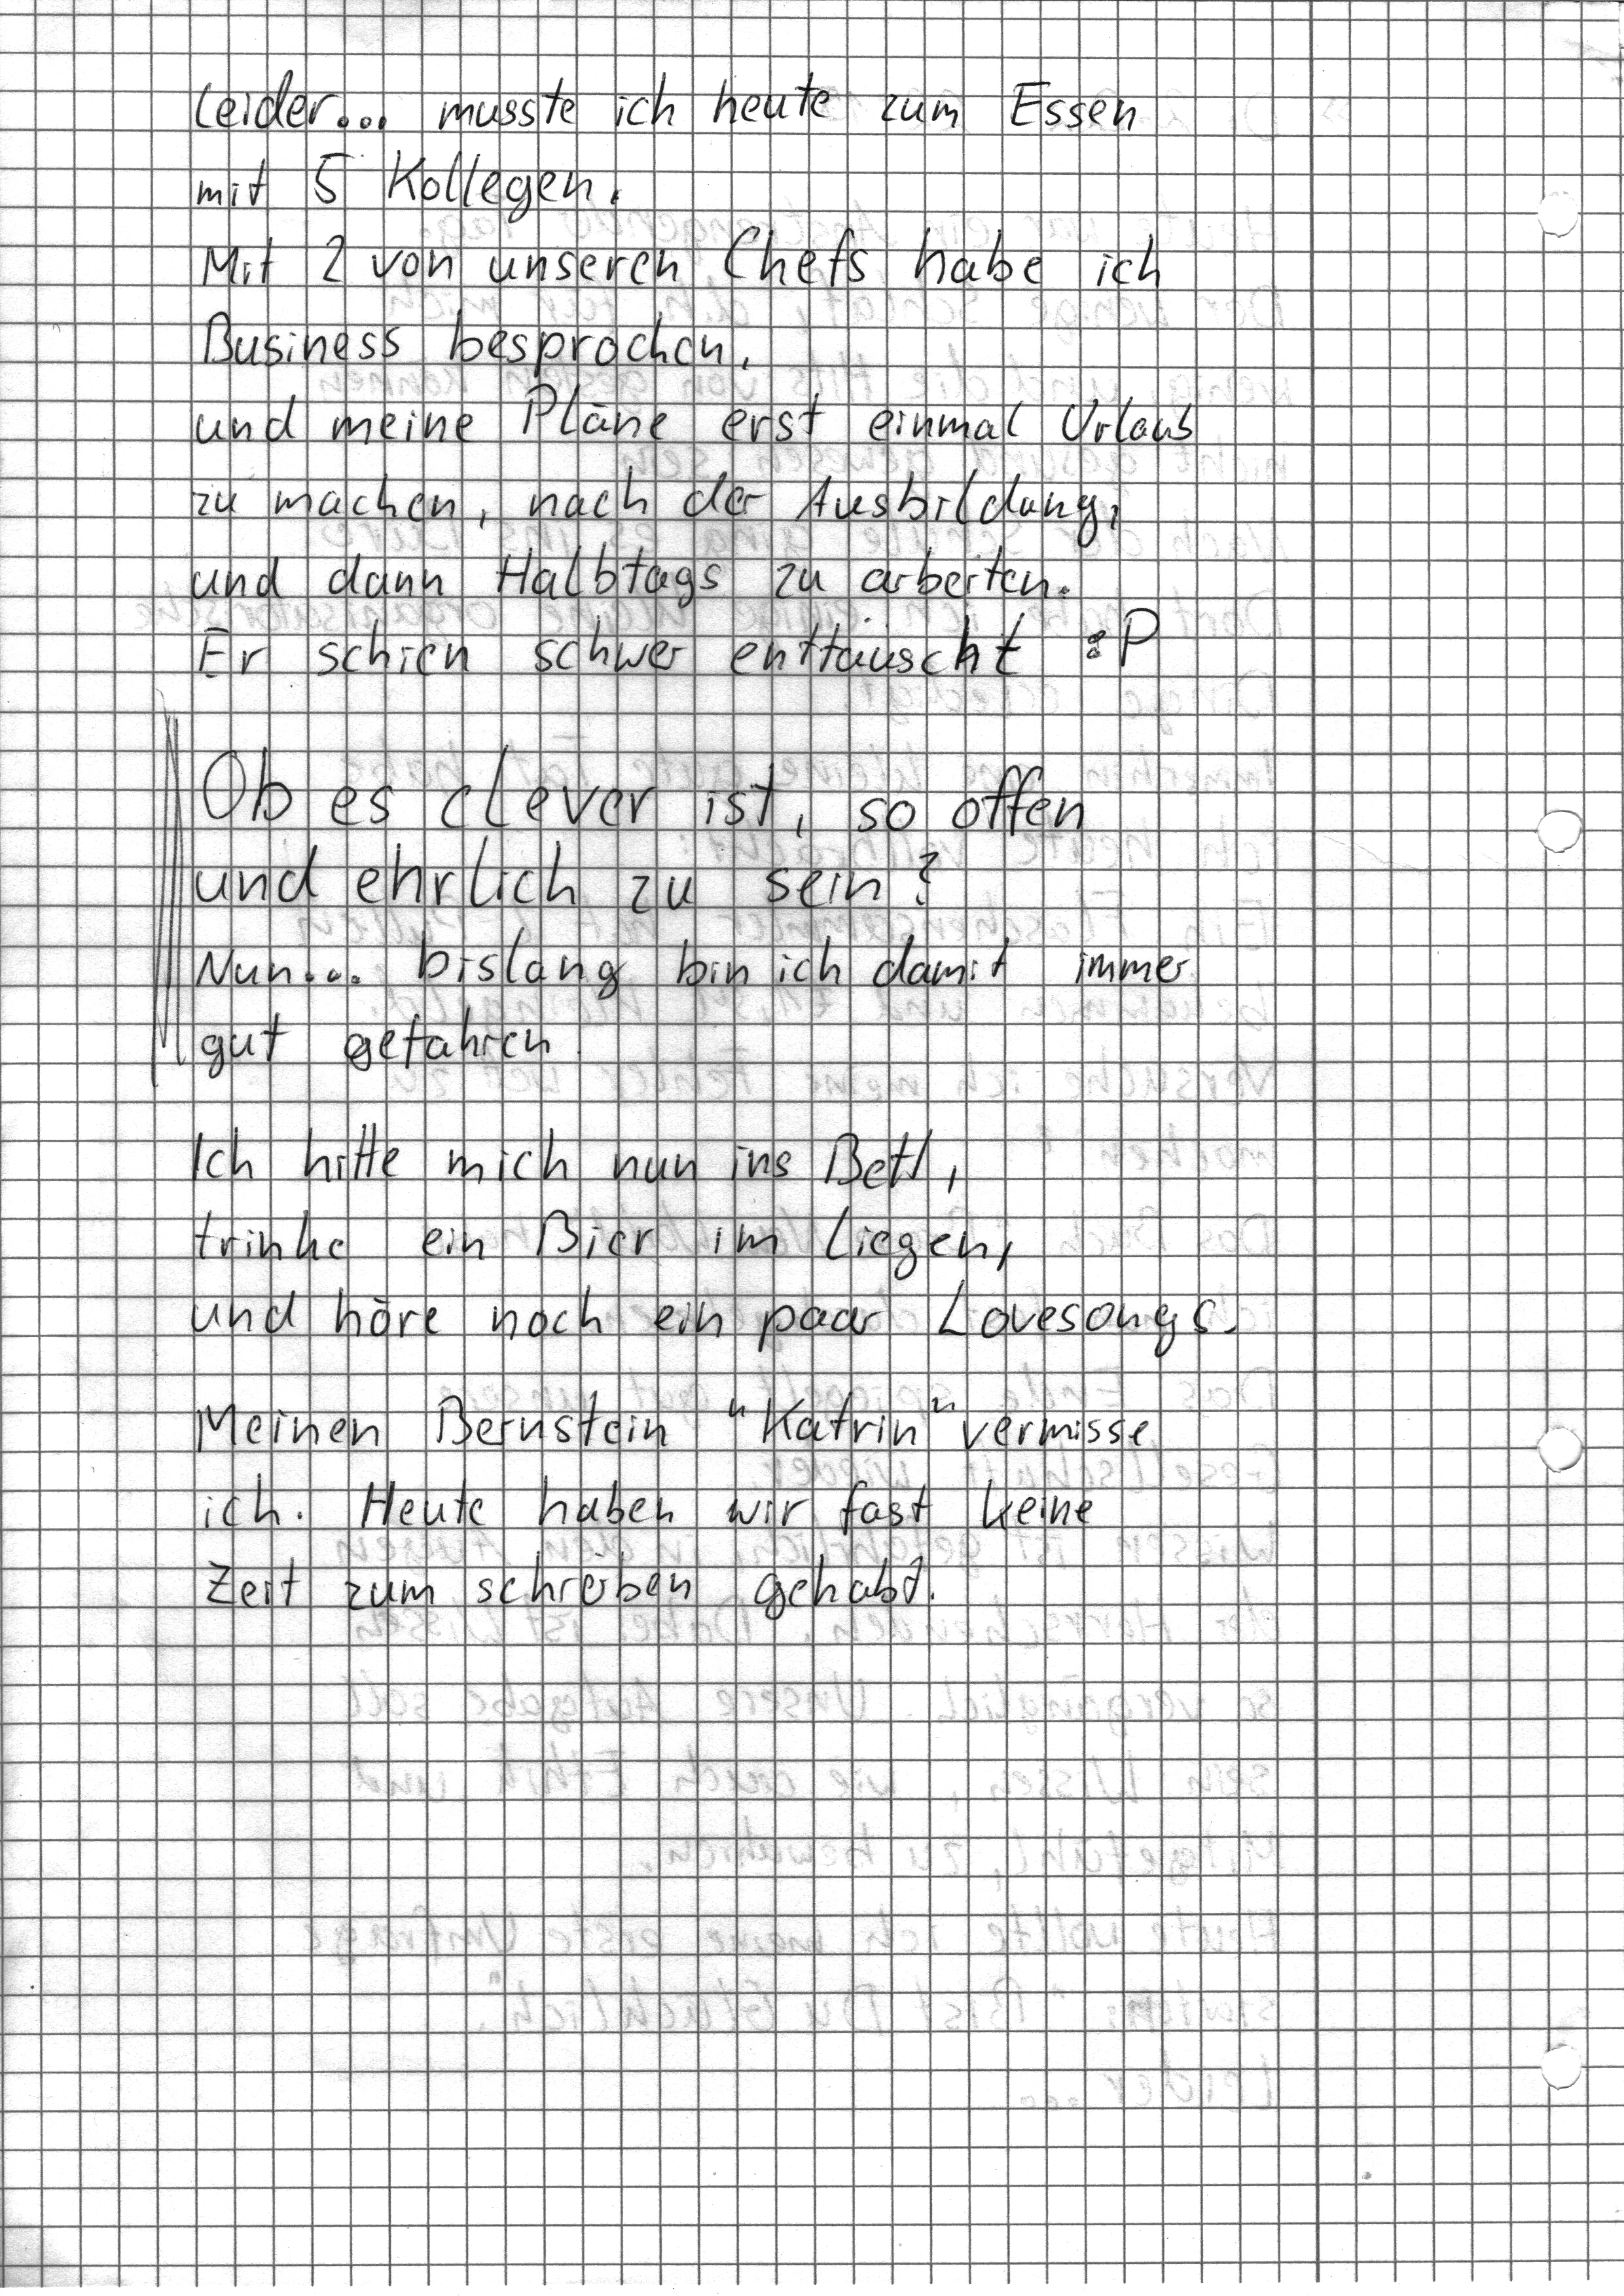 Leider... musste ich heute zum Essen
mit 5 Kollegen.
Mit 2 von unseren Chefs habe ich
Business besprochen,
und meine Pläne erst einmal Urlaub
zu machen, nach der Ausbildung,
und dann Halbtags zu arbeiten.
Er schien schwer enttäuscht :P
Ob es clever ist, so offen
und ehrlich zu sein?
Nun... bislang bin ich damit immer
gut gefahren.
Ich hitte mich nun ins Bett,
trinke ein Bier im Liegen,
und höre noch ein paar Lovesongs.
Meinen Bernstein "Katrin" vermisse
ich. Heute haben wir fast keine
Zeit zum schreiben gehabt.